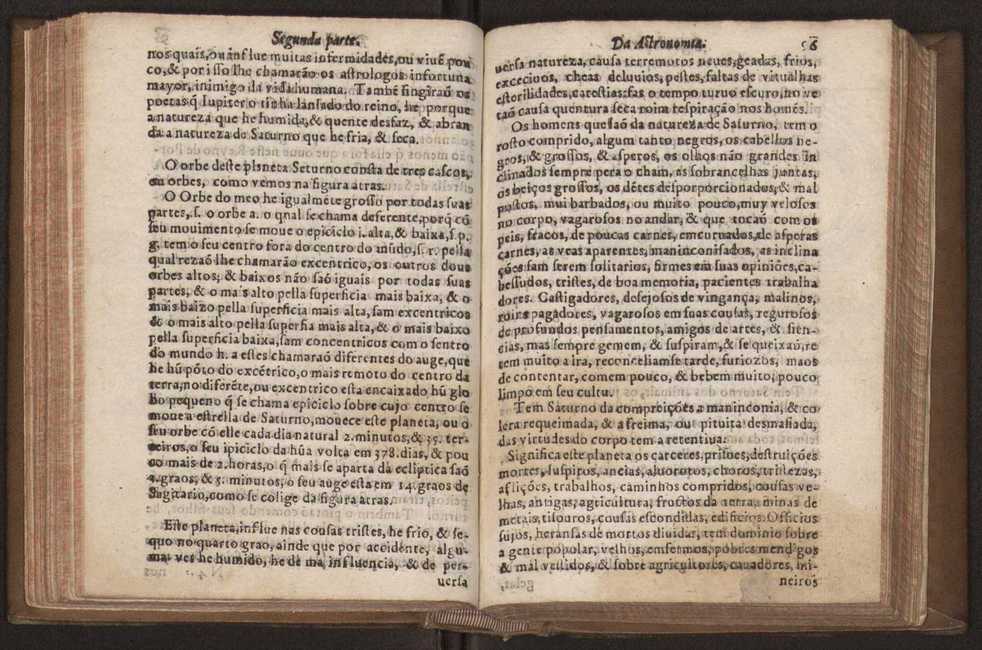 Segunda parte.
nos quais, ou influe muitas infermidades, ou viuē pou
co, & por isso lhe chamaraõ os astrologos infortuna
mayor, inimigo da vida humana. Tambē fingiraõ os
poetas q̃ Iupiter o tinha lansado do reino, he, porque
a natureza que he humida, & quente desfaz, & abran
da a natureza de Saturno que he fria, & seca.
O orbe deste planeta Seturno consta de tres cascos,
ou orbes, como vemos na figura atras.
O Orbe do meo he igualmēte grosso por todas suas
partes, s. o orbe a. o qual se chama deferente, porq̃ cõ
seu movimento se moue o epiciclo i. alta, & baixa, s. p.
g. tem o seu centro fora do centro do mūdo, s. r. pella
qual rezaõ lhe chamarão excentrico, os outros dous
orbes altos, & baixos não saõ iguais por todas suas
partes, & o mais alto pella superficia mais baixa, & o
mais baixo pella superficia mais alta, sam excentricos
& o mais alto pella superfia mais alta, & o mais baixo
pella superficia baixa, sam concentricos com o sentro
do mundo h. a estes chamaraõ diferentes do auge, que
he hū põto do excētrico, o mais remoto do centro da
terra, no diferēte, ou excentrico esta encaixado hū glo
bo pequeno q̃ se chama epiciclo sobre cujo centro se
moue a estrella de Saturno, mouece este planeta, ou o
seu orbe cõ elle cada dia natural 2. minutos, & 35. ter-
ceiros, o seu ipiciclo da hūa volta em 378. dias, & pou
co mais de 2. horas, o q̃ mais se aparta da ecliptica saõ
graos, & 3. minutos, o seu auge esta em 14. graos de
Sagitario, como se colige da figura atras.
Este planeta, influe nas cousas tristes, he frio, & se-
quo no quarto grao, ainde que por accidente, algu-
mas ves he humido, he de ma influencia, & de per-
uersa
Da Astronomia. 56
uersa natureza, causa terremotos neues, geadas, frios,
excecivos, cheas deluvios, pestes, faltas de vitualhas
esterilidades, carestias: fas o tempo turuo escuro, no ve
raõ causa quentura seca roim respiração nos homēs.
Os homens que saõ da natureza de Saturno, tem o
rosto comprido, algum tanto negros, os cabellos ne-
gros, & grossos, & asperos, os olhos não grandes In
clinados sempre pera o cham, as sobrancelhas juntas,
os beiços grossos, os dētes desporporcionados, & mal
postos, mui barbados, ou muito pouco, muy velosos
no corpo, vagarosos no andar, & que tocaõ com os
peis, fracos, de poucas carnes, emcoruados, de asperas
carnes, as veas aparentes, maninconisados, as inclina
ções sam serem solitarios, firmes em suas opiniões, ca-
bessudos, tristes, de boa memoria, pacientes trabalha
dores. Castigadores, desejosos de vingança; malinos,
roins pagadores, vagarosos em suas cousas, regurosos
de profundos pensamentos, amigos de artes, & sien-
cias, mas sempre gemem, & suspiram, & se queixaõ, re
tem muito a ira, reconceliamse tarde, furiozos, maos
de contentar, comem pouco, & bebem muito, pouco
limpo em seu cultu.
Tem Saturno da compreições a maninconia, & co
lera requeimada, & a freima, ou pituita desmasiada,
das virtudes do corpo tem a retentiua:
Significa este planeta os carceres, prisoes, destruições
mortes, suspiros, ancias, aluorotos, choros, tristezas,
aflições, trabalhos, caminhos compridos, cousas ve-
lhas, antigas, agricultura, fructos da terra, minas de
metais, tisouros, cousas escondidas, edificios. Officios
sujos, heransas de mortos diuidas, tem dominio sobre
a gente popolar, velhos, enfermos, pobres mendigos
& mal vestidos, & sobre agricultores, cauadores, mi-
neiros